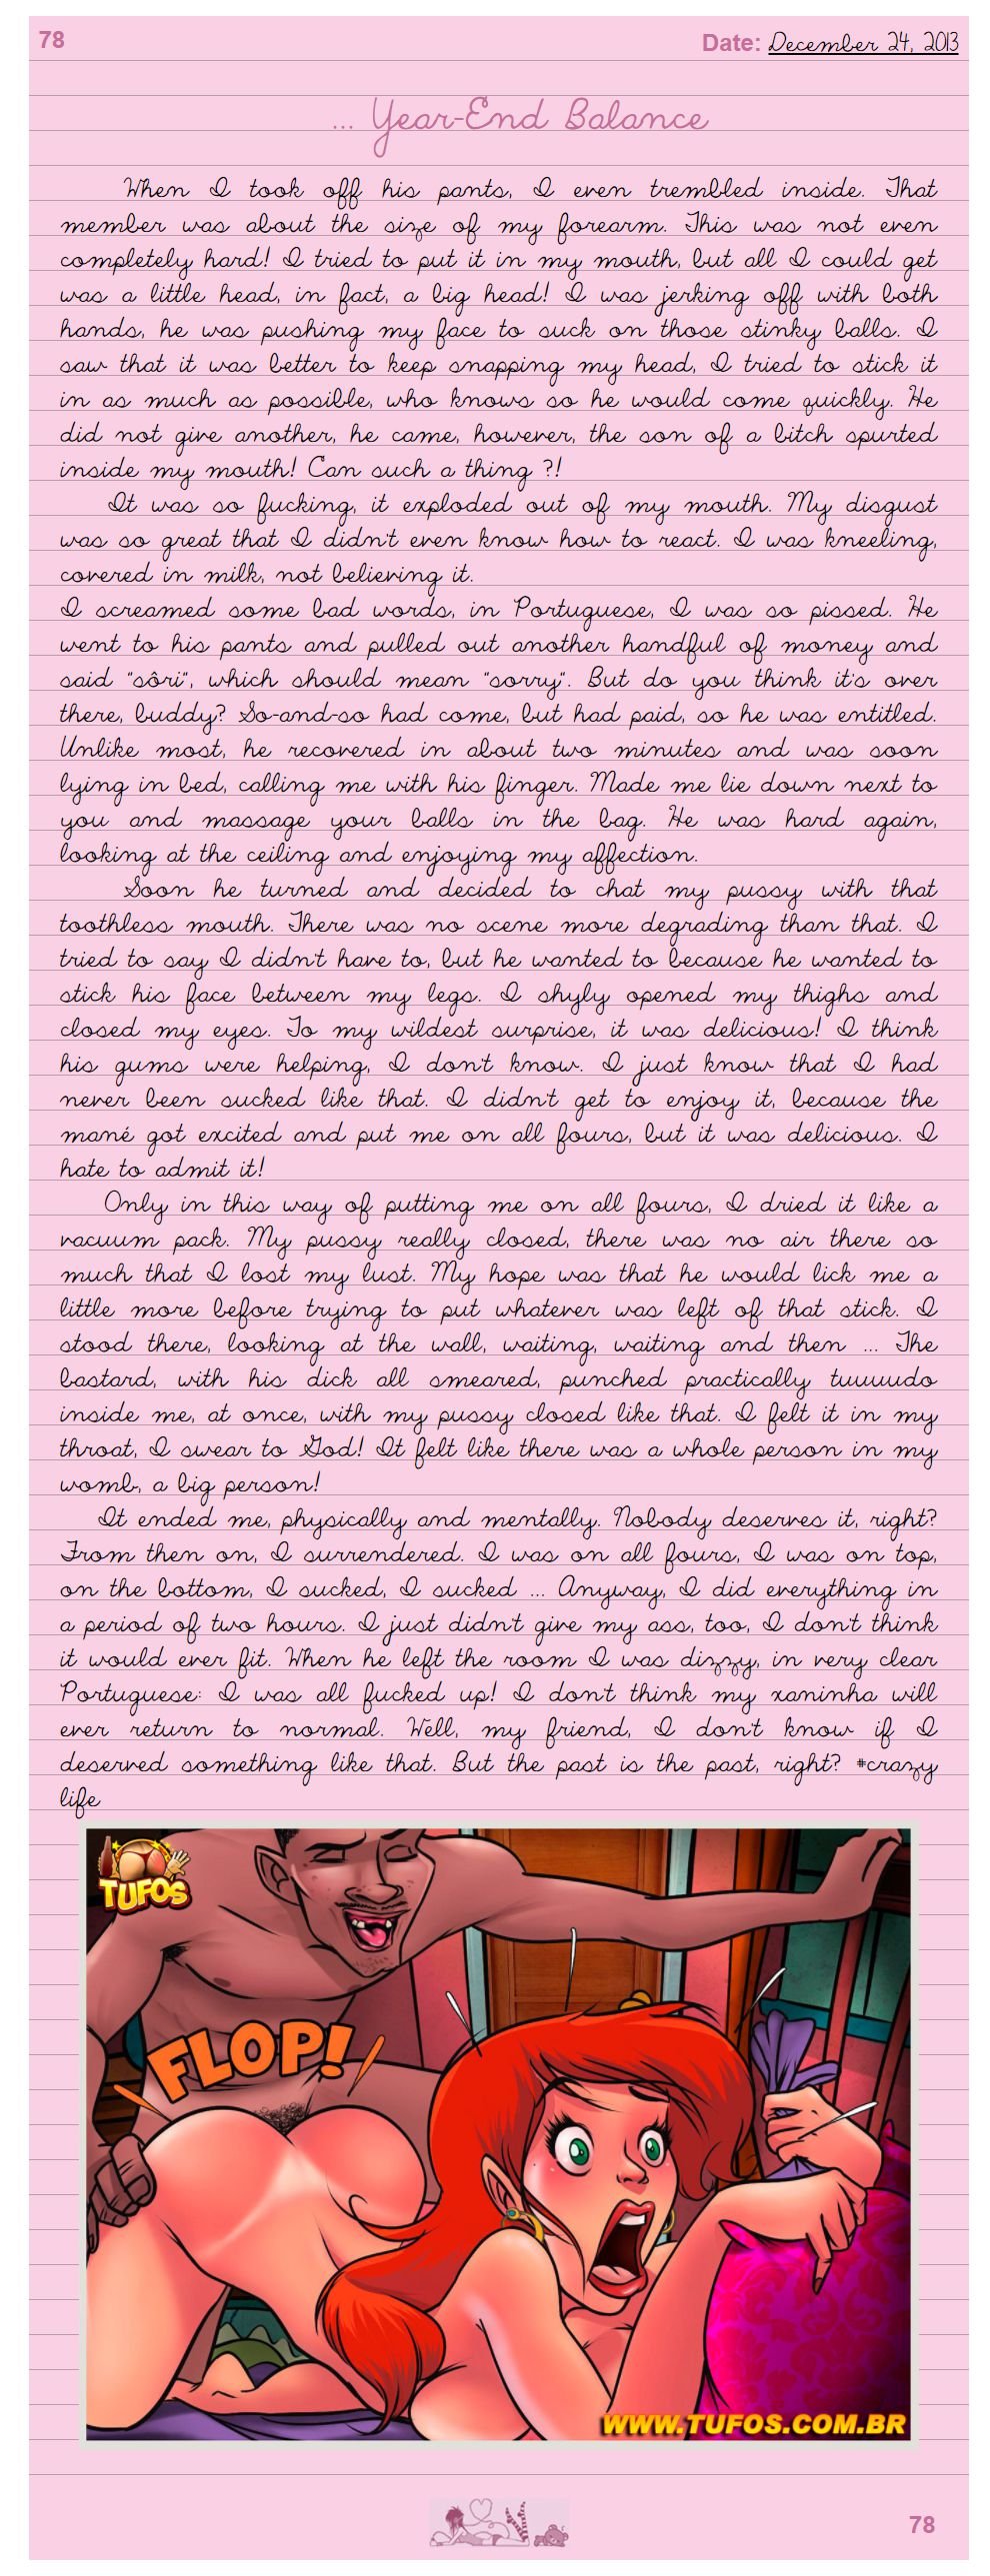 78
Date: December 24, 2013
... Year-End Balance
When I took off his pants, I even trembled inside. That
member was about the size of my forearm. This was not even
completely hard! I tried to put it in my mouth, but all I could get
was a little head, in fact, a big head! I was jerking off with both
hands, he was pushing my face to suck on those stinky balls. I
saw that it was better to keep snapping my head, I tried to stick it
in as much as possible, who knows so he would come quickly. He
did not give another, he came, however, the son of a bitch spurted
inside my mouth! Can such a thing ?!
It was so fucking, it exploded out of my mouth. My disgust
was so great that I didn't even know how to react. I was kneeling,
covered in milk, not believing it.
I screamed some bad words, in Portuguese, I was so pissed. He
went to his pants and pulled out another handful of money and
said "sôri", which should mean "sorry". But do you think it's over
there, buddy? So-and-so had come, but had paid, so he was entitled.
Unlike most, he recovered in about two minutes and was soon
lying in bed, calling me with his finger. Made me lie down next to
you and massage your balls in the bag. He was hard again,
looking at the ceiling and enjoying my affection.
Soon he turned and decided to chat my pussy with that
toothless mouth. There was no scene more degrading than that. I
tried to say I didn't have to, but he wanted to because he wanted to
stick his face between my legs. I shyly opened my thighs and
closed my eyes. To my wildest surprise, it was delicious! I think
his gums were helping, I don't know. I just know that I had
never been sucked like that. I didn't get to enjoy it, because the
mané got excited and put me on all fours, but it was delicious. I
hate to admit it!
Only in this way of putting me on all fours, I dried it like a
vacuum pack. My pussy really closed, there was no air there so
much that I lost my lust. My hope was that he would lick me a
little more before trying to put whatever was left of that stick. I
stood there, looking at the wall, waiting, waiting and then ... The
bastard, with his dick all smeared, punched practically tuuuudo
inside me, at once, with my pussy closed like that. I felt it in my
throat, I swear to God! It felt like there was a whole person in my
womb, a big person!
It ended me, physically and mentally. Nobody deserves it, right?
From then on, I surrendered. I was on all fours, I was on top,
on the bottom, I sucked, I sucked ... Anyway, I did everything in
a period of two hours. I just didn't give my ass, too, I don't think
it would ever fit. When he left the room I was dizzy, in very clear
Portuguese: I was all fucked up! I don't think my xaninha will
ever return to normal. Well, my friend, I don't know if I
deserved something like that. But the past is the past, right? #crazy
life
TUFOS
FLOP!
WWW.TUFOS.COM.BR
78